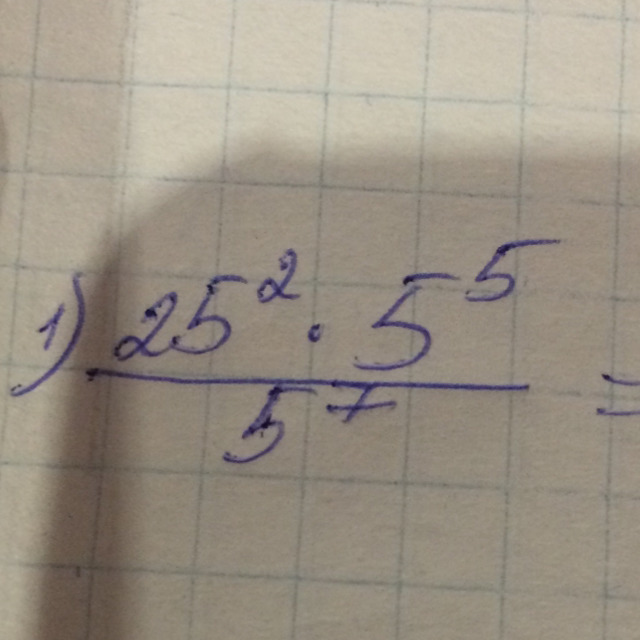 1) 25² · 5⁵
5⁷ =